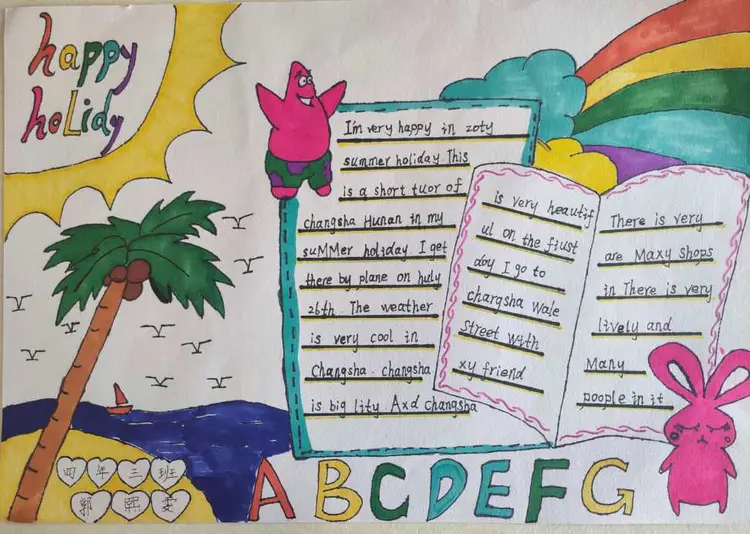 happy
holidy
I'm very happy in zoty
summer holiday. This
is a short tuor of
changsha Hunan in my
suMMer holiday I get
there by plane on huly
26th. The weather
is very cool in
Changsha. changsha
is big lity Axd changsha
is very heautif
ul on the fiust
day I go to
chargsha Wale
Street With
xy friend
There is very
are Maxy shops
in There is very
lively and
Many
poople in it
四年三班
郭熙雯
ABCDEFG